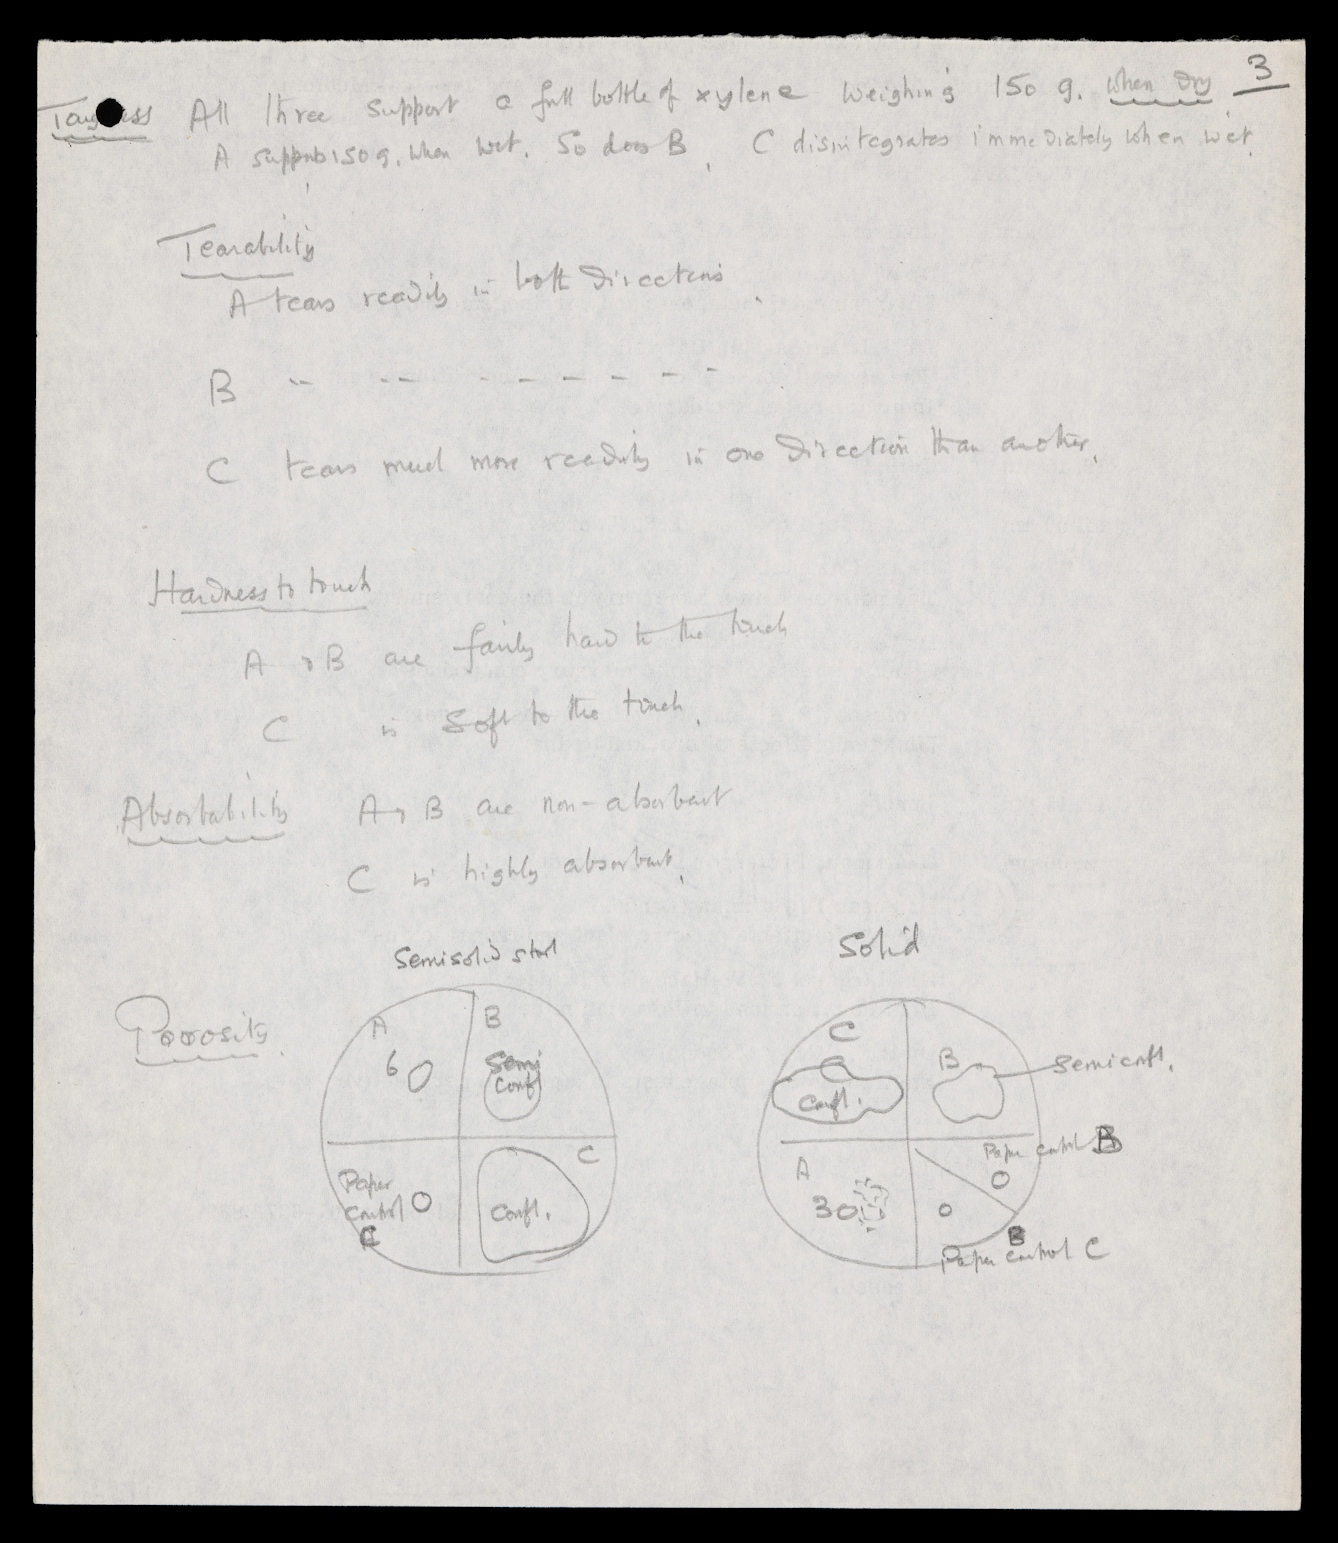 3
Toughness All three support a full bottle of xylene weighing 150 g. when dry
A supports 150 g. when wet. So does B. C disintegrates immediately when wet.
Tearability
A tears readily in both directions.
B " - - - - - - - -
C tears much more readily in one direction than another.
Hardness to touch
A & B are fairly hard to the touch
C is soft to the touch.
Absorbability A & B are non-absorbant
C is highly absorbant.
Semisolid stool
Solid
Porosity.
A
6
B
Semi
Confl
Paper
Control
C
O
C
Confl.
C
Confl.
B
Semi confl.
A
30
Paper control B
O
O
B
Paper control C